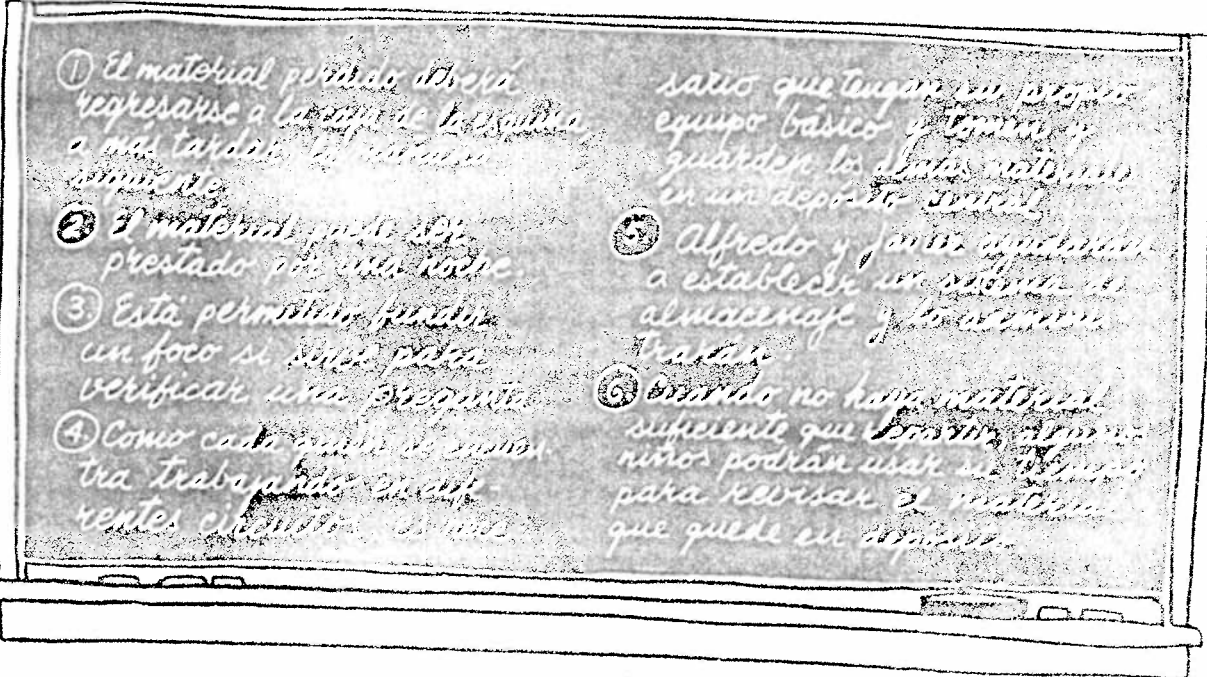 ① El material perdido deberá
regresarse a la caja de la esquina
a más tardar la mañana
siguiente.
② El material puede ser
prestado por una noche.
③ Está permitido fundir
un foco si sirve para
verificar una pregunta.
④ Como cada quien se encuen-
tra trabajando en dife-
rentes circuitos, es nece-
sario que tengan su propio
equipo básico y tomen y
guarden los demás materiales
en un depósito central.
⑤ Alfredo y Javier ayudarán
a establecer un sistema de
almacenaje y lo
⑥ Cuando no haya material
suficiente que algunos
niños podrán usar su tiempo
para revisar el material
que quede en